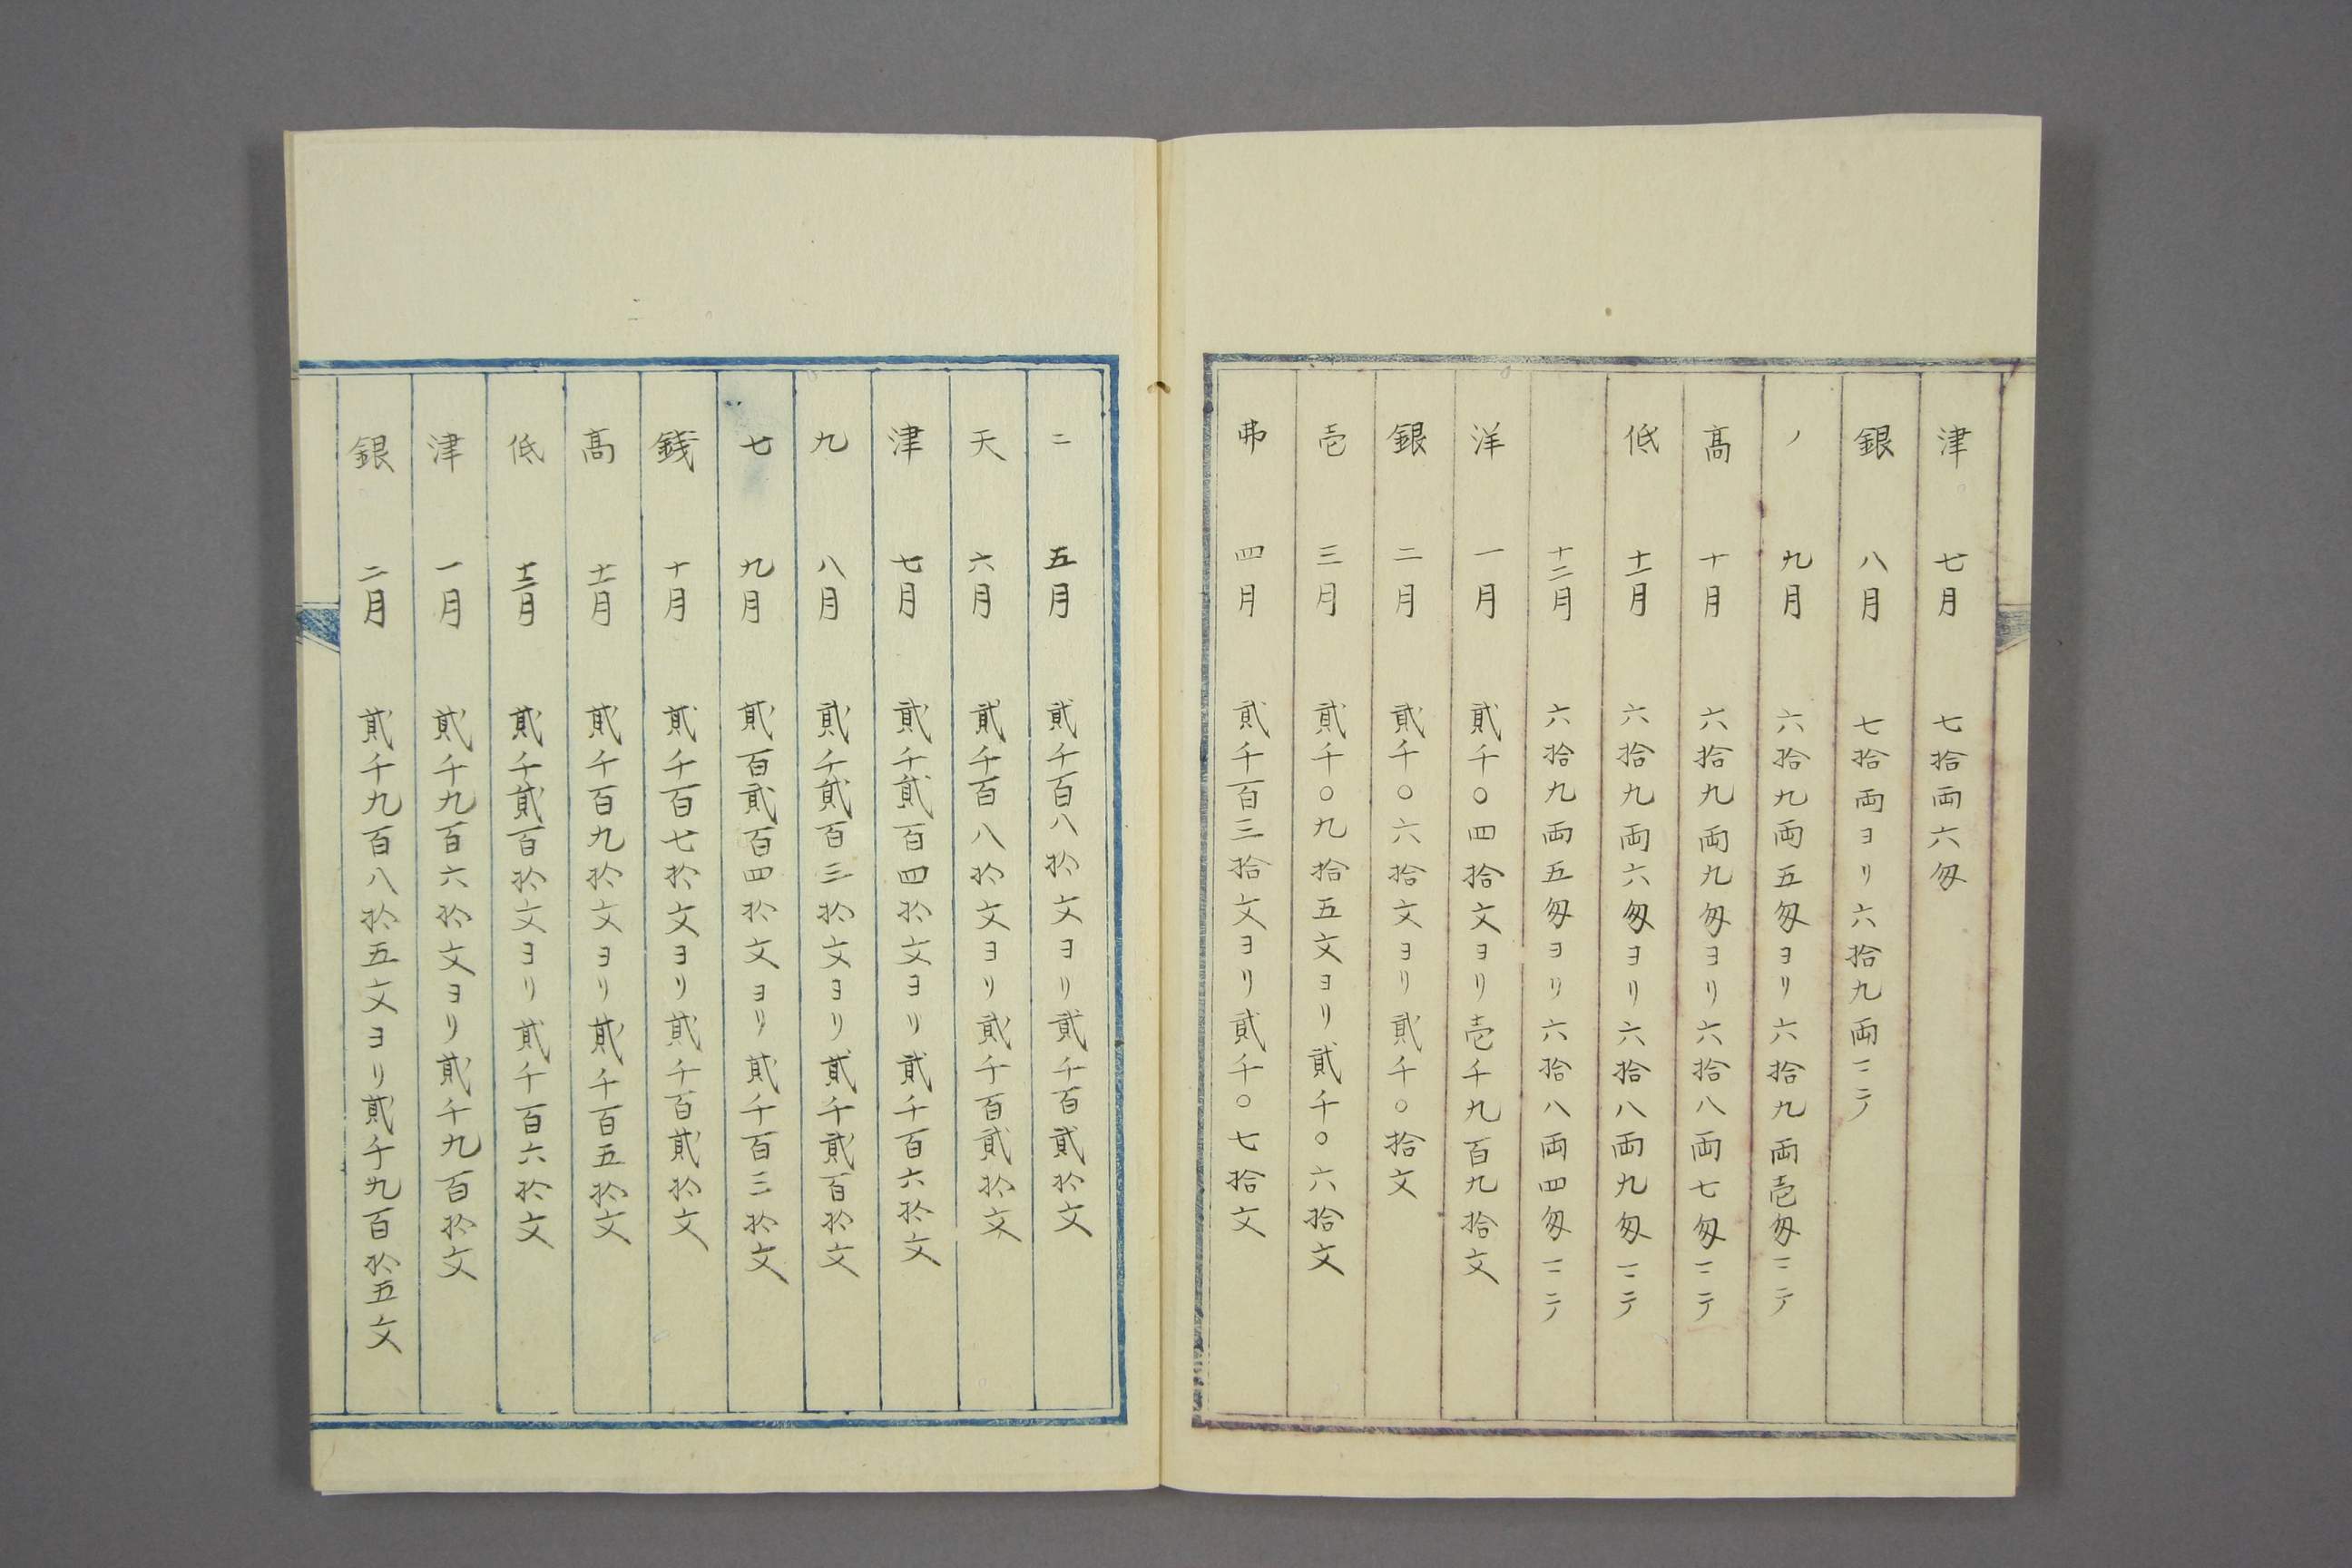 津 七月 七拾両六匁
銀 八月 七拾両ヨリ六拾九両ニテ
ノ 九月 六拾九両五匁ヨリ六拾九両壱匁ニテ
髙 十月 六拾九両九匁ヨリ六拾八両七匁ニテ
低 十一月 六拾九両六匁ヨリ六拾八両九匁ニテ
十二月 六拾九両五匁ヨリ六拾八両四匁ニテ
洋 一月 貮千〇四拾文ヨリ壱千九百九拾文
銀 二月 貮千〇六拾文ヨリ貮千〇拾文
壱 三月 貮千〇九拾五文ヨリ貮千〇六拾文
弗 四月 貮千百三拾文ヨリ貮千〇七拾文
ニ 五月 貮千百八拾文ヨリ貮千百貮拾文
天 六月 貮千百八拾文ヨリ貮千百貮拾文
津 七月 貮千貮百四拾文ヨリ貮千百六拾文
九 八月 貮千貮百三拾文ヨリ貮千貮百拾文
七 九月 貮百貮百四拾文ヨリ貮千百三拾文
銭 十月 貮千百七拾文ヨリ貮千百貮拾文
髙 十一月 貮千百九拾文ヨリ貮千百五拾文
低 十二月 貮千貮百拾文ヨリ貮千百六拾文
津 一月 貮千九百六拾文ヨリ貮千九百拾文
銀 二月 貮千九百八拾五文ヨリ貮千九百拾五文